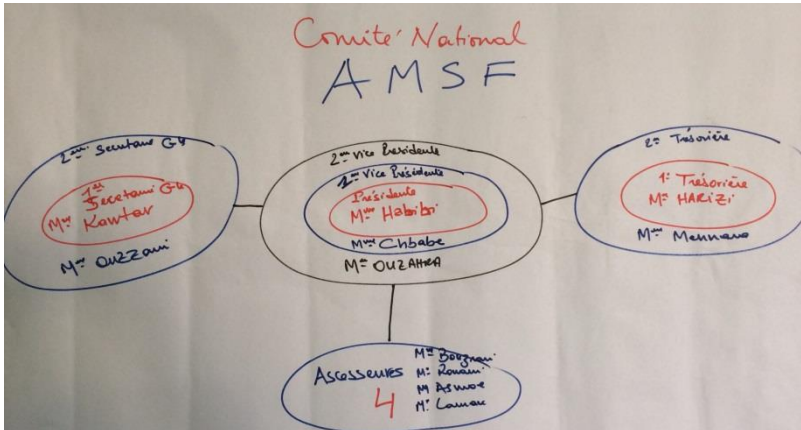 Comité National
AMSF
2ème Secretaire Gle
1ère
Secetaire Gle
Mme Kawtar
Mme Ouzzani
2ème Vice Presidente
1ère Vice Présidente
Présidente
Mme Habibi
Mme Chbabe
Mme OUZAHRA
2e Trésorière
1e Trésorière
Me HARIZI
Mme Mennana
Ascesseures
4
Me
Me
M Asmae
Me